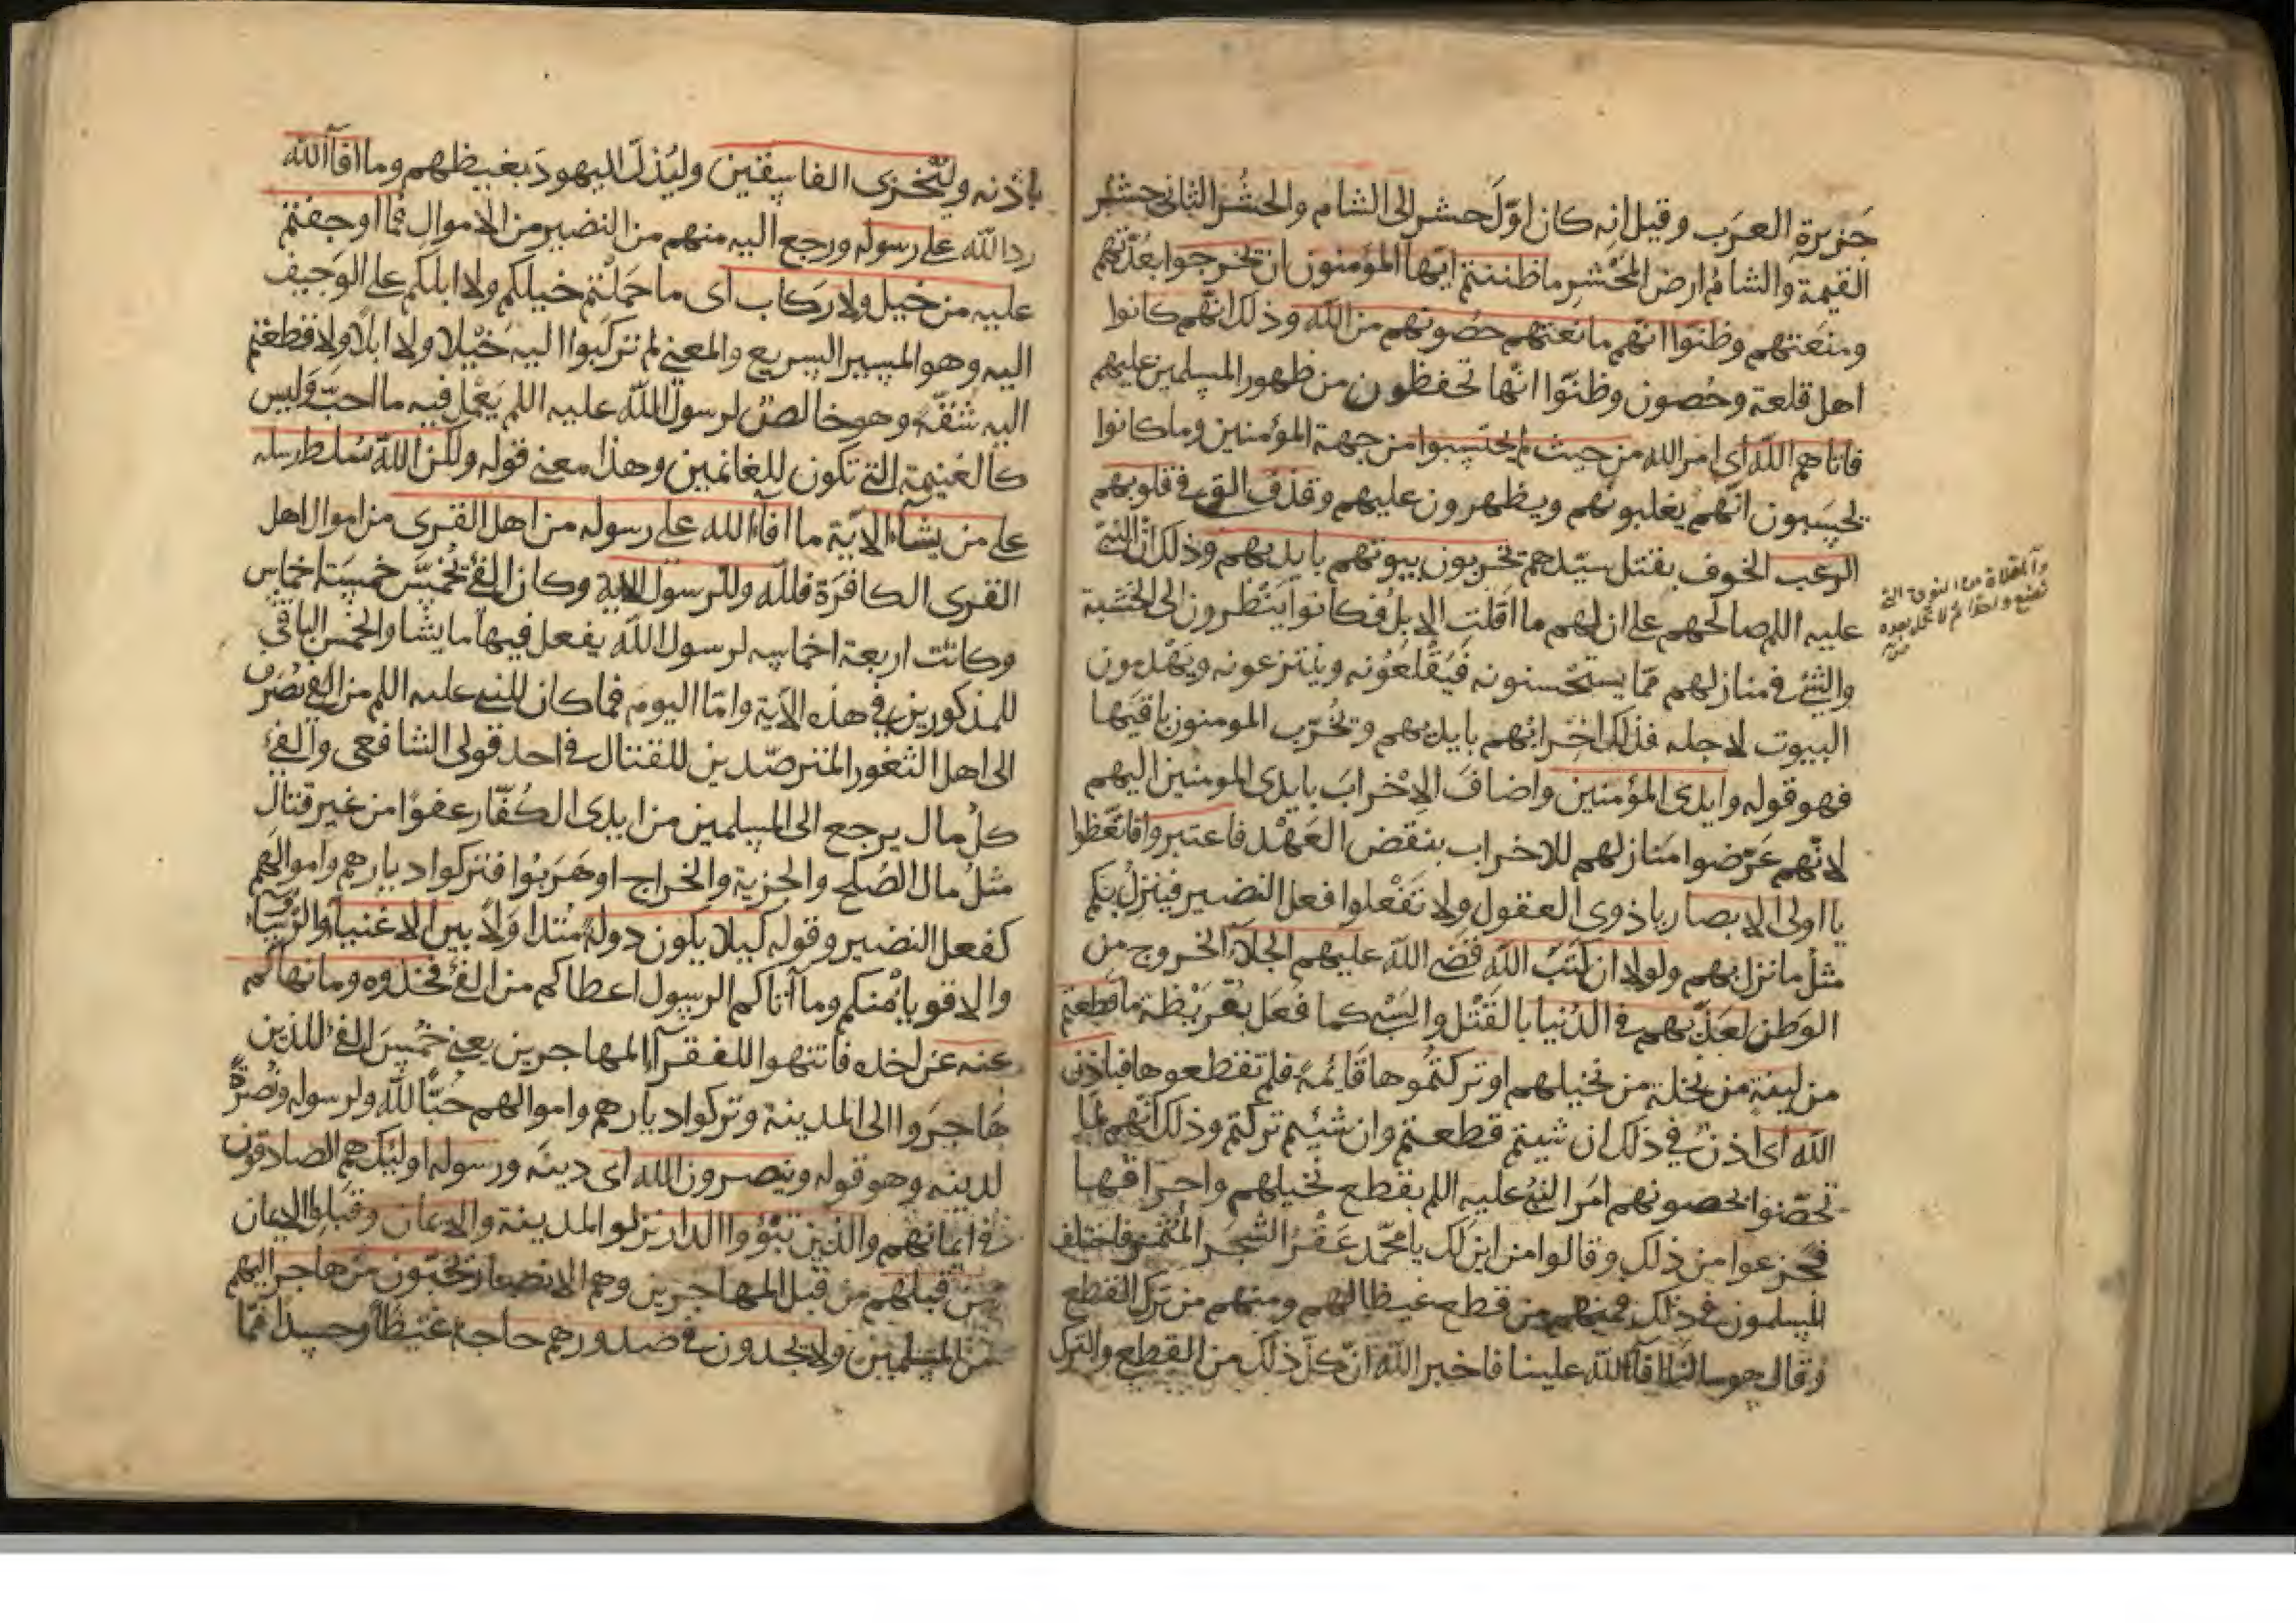 جزيرة العرب وقيل انه كان اوّل حشر الى الشام والحشر الثانى حشر
القيمة والشام ارض المحشر ما ظننتم ايّها المؤمنون ان يخرجوا بعدّتهم
ومنعتهم وظنّوا انّهم مانعتهم حصونهم من الله وذلك انّهم كانوا
اهل قلعة وحصون وظنّوا انّها تحفظون من ظهور المسلمين عليهم
فاتاهم الله اى امر الله من حيث لم يحتسبوا من جهة المؤمنين وما كانوا
يحسبون انّهم يغلبونهم ويظهرون عليهم وقذف القى فى قلوبهم
الرعب الخوف بقتل سيّدهم يخربون بيوتهم بايديهم وذلك انّ النبىّ
عليه اللم صالحهم على ان لهم ما اقلّت الابل فكانوا ينظرون الى الخشبة
والشئ فى منازلهم ممّا يستحسنونه فيقلعونه وينتزعونه ويهدمون
البيوت لاجله فذلك اخرابهم بايديهم وتخرّب المومنون باقيها
فهو قوله وايدى المؤمنين واضاف الاخراب بايدى المومنين اليهم
لانّهم عرّضوا منازلهم للاخراب بنقض العهد فاعتبروا فاتّعظوا
يا اولى الابصار ياذوى العقول ولا تفعلوا فعل النضير فينزل بكم
مثل ما نزل بهم ولولا ان كتب الله قضى الله عليهم الجلآء الخروج من
الوطن لعذّبهم فى الدنيا بالقتل والسبى كما فعل بقريظة ما قطعتم
من لينة من نخلة من نخيلهم او تركتموها قائمة فلم تقطعوها فباذن
الله اى اذن فى ذلك ان شيتم قطعتم وان شئيم تركتم وذلك انّهم لمّا
تحصّنوا بحصونهم امر النبى عليه اللم بقطع نخيلهم واحراقها
فجزعوا من ذلك وقالوا من اين لك يا محمّد عقر الشجر المثمر فاختلف
المسلمون فى ذلك فمنهم من قطع غيظا لهم ومنهم من ترك القطع
وقال هو مالنا افآء الله علينا فاخبر الله انّ كلّ ذلك من القطع والترك
والمقلاة من النوق التى
تضع واحدا ثم لا تحمل بعده
باذنه وليخزى الفاسقين وليذلّ اليهود بغيظهم وما افآء الله
ردّ الله على رسوله ورجع اليه منهم من النضير من الاموال فما اوجفتم
عليه من خيل ولا ركاب اى ما حملتم خيلكم ولا ابلكم على الوجيف
اليه وهو المسير السريع والمعنى لم تركبوا اليه خيلا ولا ابلا ولا قطعتم
اليه شقّة وهو خالص لرسول الله عليه اللم يعمل فيه ما احبّ وليس
كالغنيمة التى تكون للغانمين وهذا معنى قوله ولكن الله يسلط رسله
على من يشآء الاية ما افآء الله على رسوله من اهل القرى من اموال اهل
القرى الكافرة فللّه وللرسول الاية وكان الفئ يخمّس خمسة اخماس
وكانت اربعة اخماسه لرسول الله يفعل فيها ما يشا والخمس الباقى
للمذكورين فى هذه الآية وامّا اليوم فما كان للنبى عليه اللم من الفئ يصرف
الى اهل الثغور المترصّدين للقتال فى احد قولى الشافعى والفئ
كل مال يرجع الى المسلمين من ايدى الكفّار عفوًا من غير قتال
مثل مال الصلح والجزية والخراج او هربوا فتركوا ديارهم واموالهم
كفعل النضير وقوله كيلا يكون دولة متداولا بين الاغنيا والرؤسآء
والاقويا منكم وما آتاكم الرسول اعطاكم من الفئ فخذوه وما نهاكم
عنه عن اخذه فانتهوا للفقرآء المهاجرين يعنى خمس الفئ للذين
هاجروا الى المدينة وتركوا ديارهم واموالهم حبًّا للّه ولرسوله ونصرةً
لدينه وهو قوله وينصرون الله اى دينه ورسوله اولئك هم الصادقون
فى ايمانهم والذين تبوّؤا الدار نزلوا المدينة والايمان وقبلوا الايمان
من قبلهم من قبل المهاجرين وهم الانصار يحبّون من هاجر اليهم
من المسلمين ولا يجدون فى صدورهم حاجة غيظا وحسدا ممّا